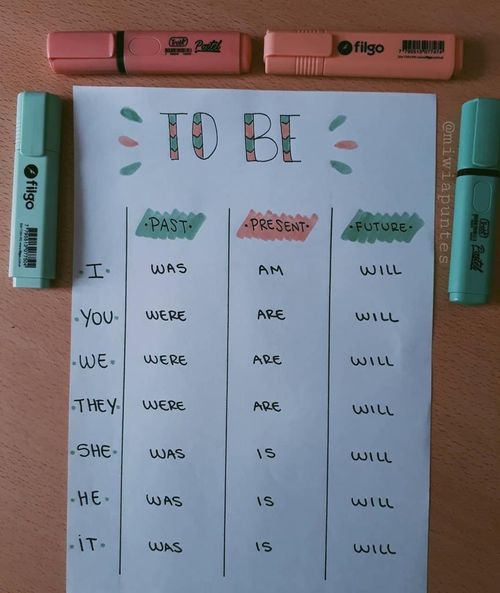 Trabi Pastel
filgo
TO BE
filgo
@miwiapuntes
Pastel
·PAST· ·PRESENT· ·FUTURE·
·I· WAS AM WILL
·YOU· WERE ARE WILL
·WE· WERE ARE WILL
·THEY· WERE ARE WILL
·SHE· WAS IS WILL
·HE· WAS IS WILL
·iT· WAS IS WILL